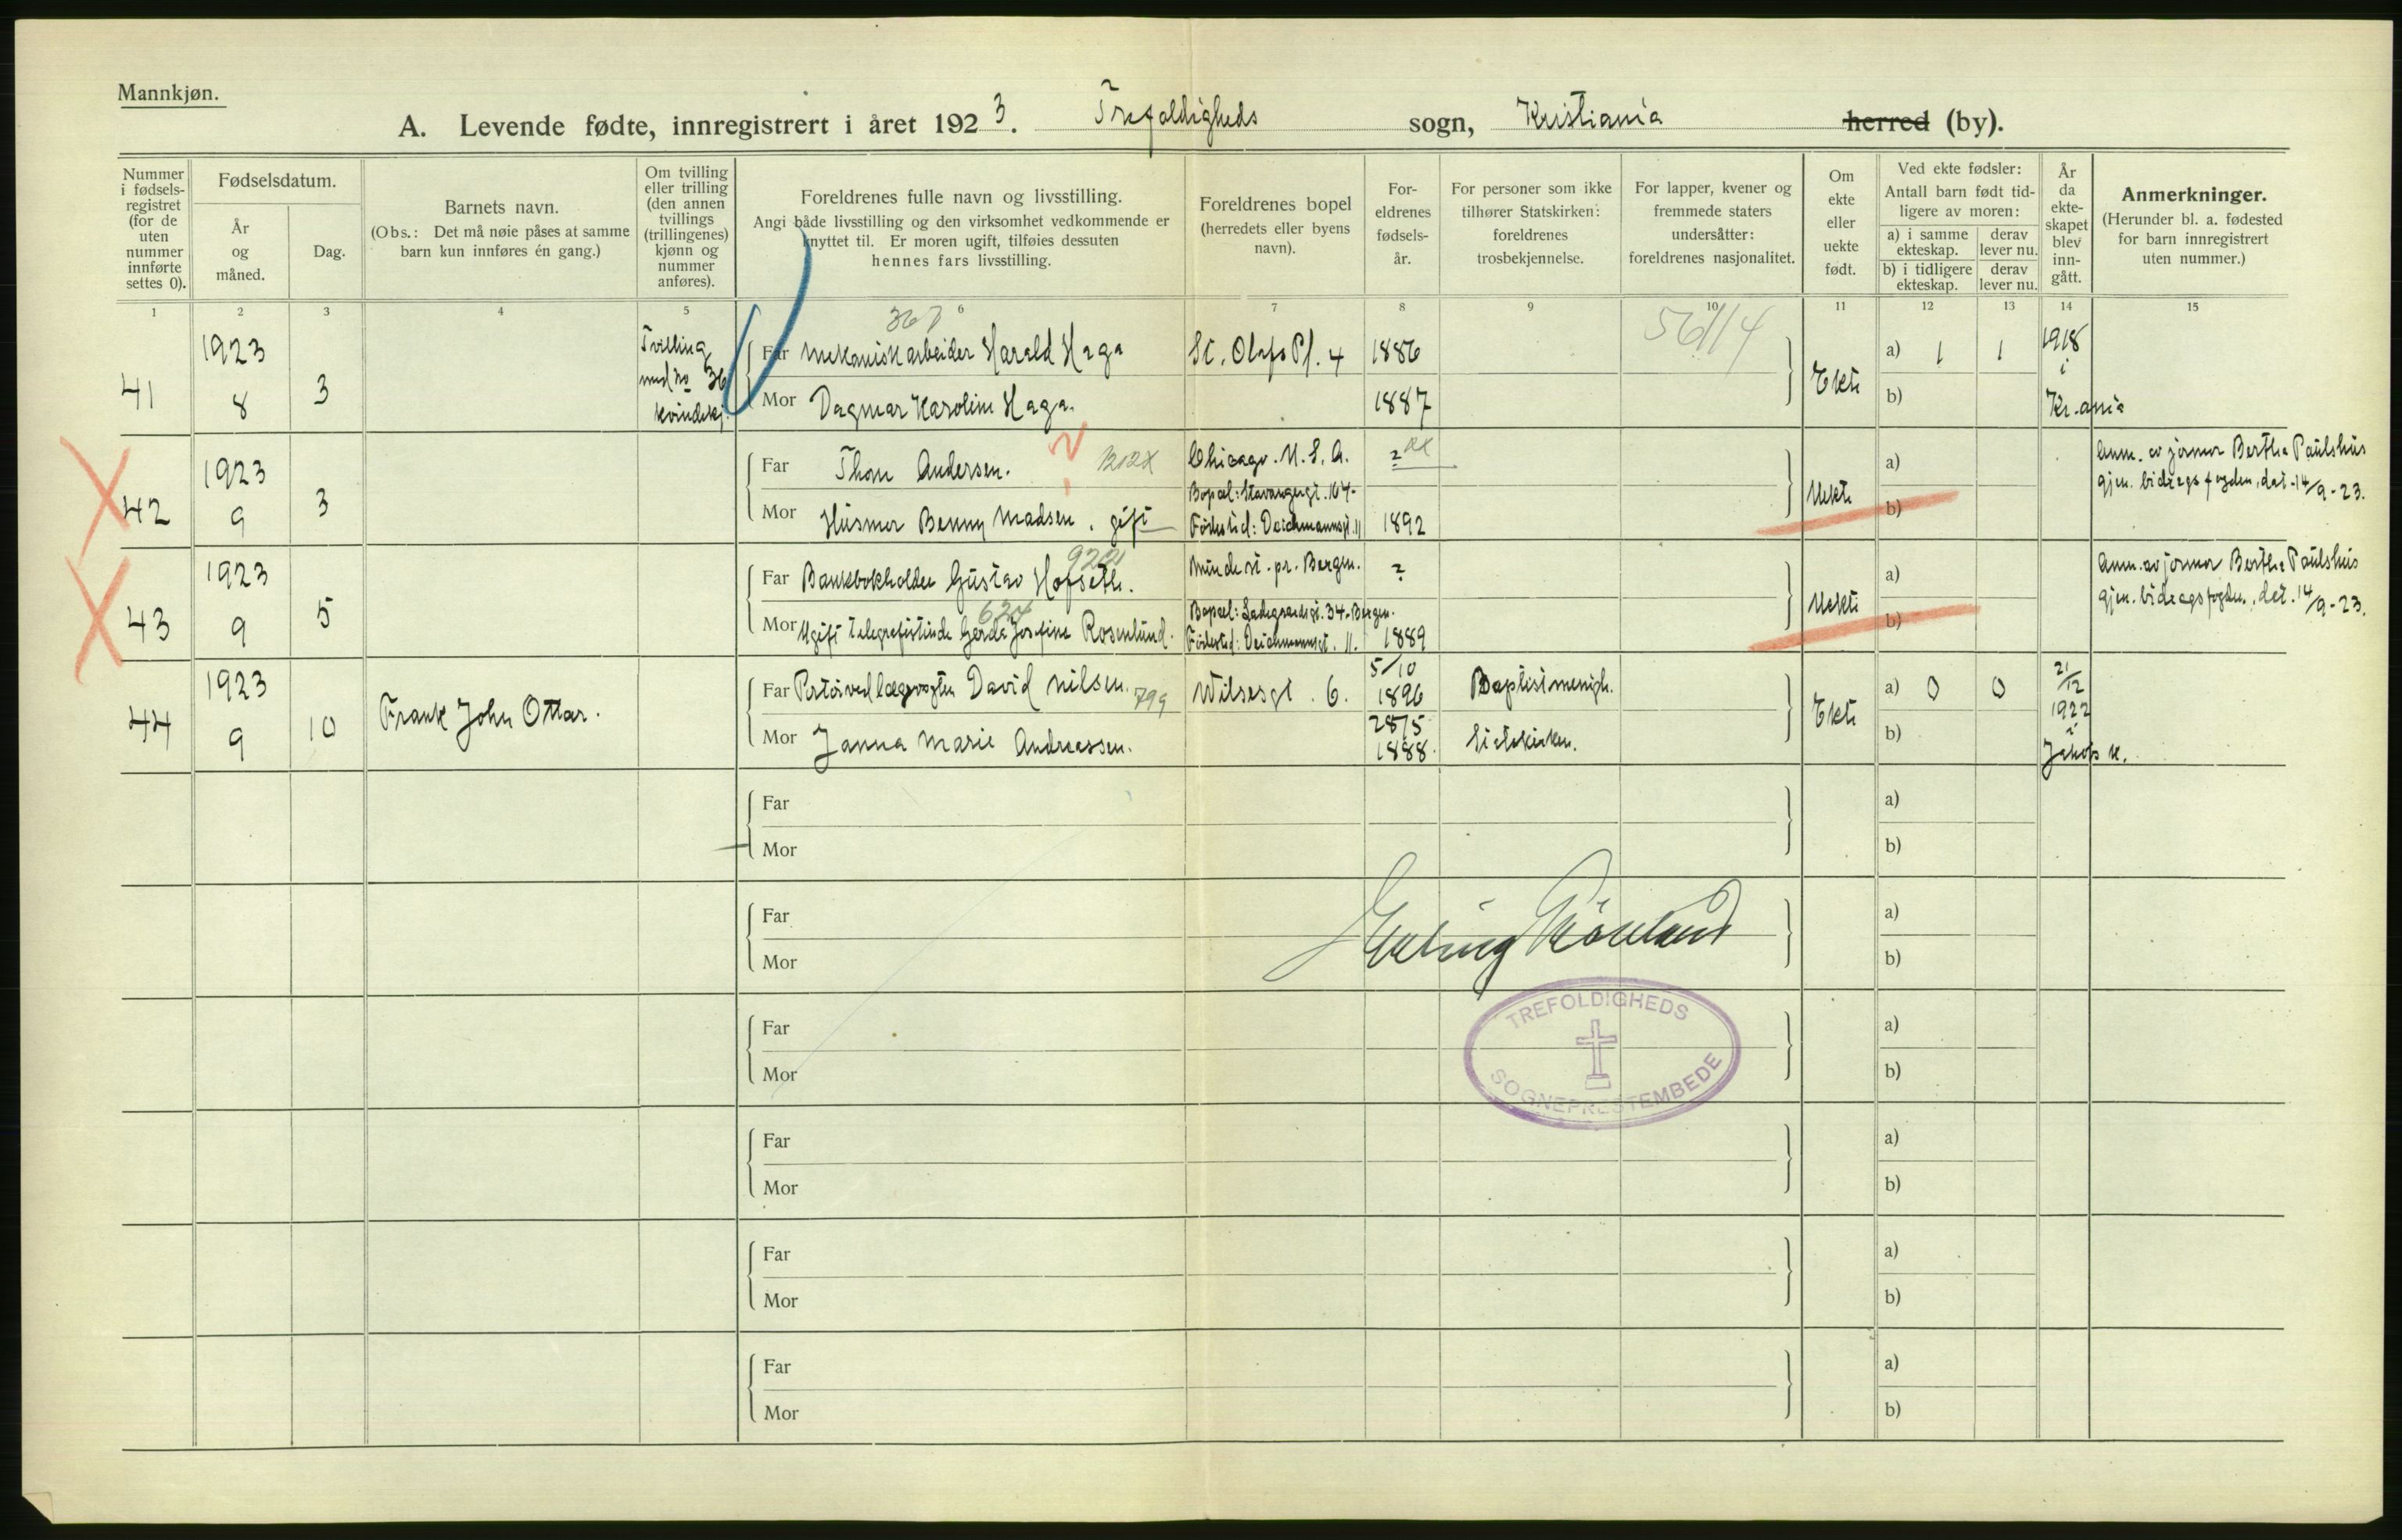 Mannkjøn.
A. Levende fødte, innregistrert i året 1923. Trefoldigheds sogn, Kristiania herred (by).
Nummer i fødsels- registret (for de uten nummer innførte settes 0).
Fødselsdatum.
År og måned.
Dag.
Barnets navn.
(Obs.: Det må nøie påses at samme barn kun innføres én gang.)
Om tvilling eller trilling (den annen tvillings (trillingenes) kjønn og nummer anføres).
Foreldrenes fulle navn og livsstilling.
Angi både livsstilling og den virksomhet vedkommende er knyttet til. Er moren ugift, tilføies dessuten hennes fars livsstilling.
Foreldrenes bopel (herredets eller byens navn).
For- eldrenes fødsels- år.
For personer som ikke tilhører Statskirken: foreldrenes trosbekjennelse.
For lapper, kvener og fremmede staters undersåtter: foreldrenes nasjonalitet.
Om ekte eller uekte født.
Ved ekte fødsler:
Antall barn født tid- ligere av moren:
a) i samme ekteskap.
derav lever nu.
b) i tidligere ekteskap.
derav lever nu.
År da ekte- skapet blev inn- gått.
Anmerkninger.
(Herunder bl. a. fødested for barn innregistrert uten nummer.)
1 2 3 4 5 6 7 8 9 10 11 12 13 14 15
367
56114
41
1923
8
3
Tvilling
med no 36
kvindekj.
Far Mekanisk arbeider Harald Haga
St. Olafs Pl. 4
1886
Mor Dagmar Karoline Haga.
1887
Ekte
a) 1 1
b)
1918
i
Kr.ania
42
1923
9
3
Far Thom Andersen.
Chicago. U. S. A.
?
Mor Husmor Benny Madsen, gift
Bopæl: Stavangergt. 164-
Fødested: Deichmannsgt. 11
1892
Uekte
a)
b)
Anm. av jormor Berthe Paulshus
gjen. bidragsfogden, dat. 14/9-23.
43
1923
9
5
Far Bankbokholder Gustav Hofseth.
922
Minde st. pr. Bergen.
?
Mor Ugift telegrafistinde Gerda Josefine Rosenlund.
Bopæl: Ladegaardsgt. 34-Bergen.
Fødested: Deichmannsgt. 11.
1889
Uekte
a)
b)
Anm. av jormor Berthe Paulshus
gjen. bidragsfogden, dat. 14/9-23.
44
1923
9
10
Frank John Ottar.
Far Portør ved lægevagten David Nilsen.
799
Wilsesgt. 6.
5/10
1896
Baptistmenigh.
Mor Janna Marie Andreassen.
28/5
1888.
Statskirken.
Ekte
a) 0 0
b)
21/12
1922
i
Jakobs k.
Far
Mor
a)
b)
Far
Mor
a)
b)
Far
Mor
a)
b)
Far
Mor
a)
b)
Far
Mor
a)
b)
Far
Mor
a)
b)
Erling
TREFOLDIGHEDS
SOGNEPRESTEMBEDE